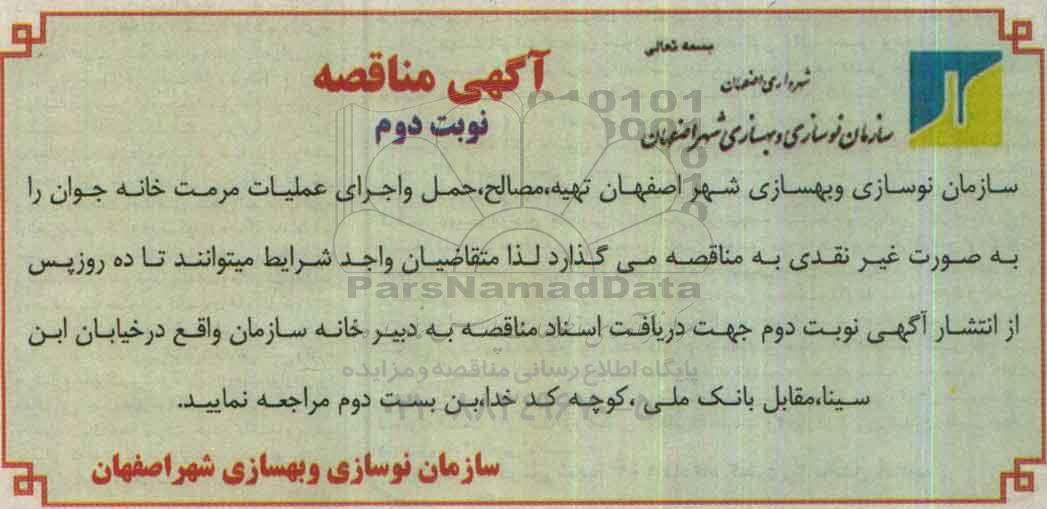 بسمه تعالی
شهرداری اصفهان
سازمان نوسازی و بهسازی شهر اصفهان
آگهی مناقصه
نوبت دوم
سازمان نوسازی وبهسازی شهر اصفهان تهیه،مصالح،حمل واجرای عملیات مرمت خانه جوان را
به صورت غیر نقدی به مناقصه می گذارد لذا متقاضیان واجد شرایط میتوانند تا ده روزپس
از انتشار آگهی نوبت دوم جهت دریافت اسناد مناقصه به دبیر خانه سازمان واقع درخیابان ابن
سینا،مقابل بانک ملی ،کوچه کد خدا،بن بست دوم مراجعه نمایید.
سازمان نوسازی وبهسازی شهراصفهان
ParsNamadData
پایگاه اطلاع رسانی مناقصه و مزایده